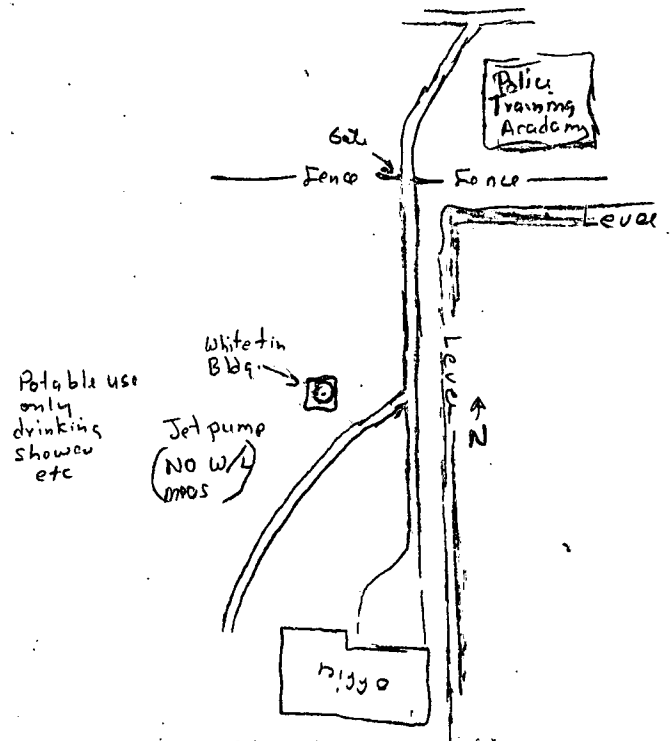 Police
Training
Academy
Gate
Fence
Fence
Levee
White tin
Bldg.
Levee
N
Potable use
only
drinking
shower
etc
Jet pump
(NO W/L
meas)
office